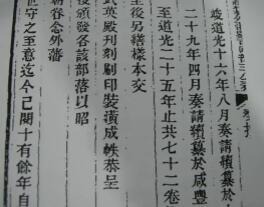 竣道光十六年八月奏請續纂於
二十九年四月奏請續纂於咸豐
至道光二十五年止共七十二卷
至後另繕樣本交
武英殿刊刻刷印裝潢成帙恭呈
後頒發各該部落以昭
朝眷念外藩
世守之至意迄今已閱十有餘年自